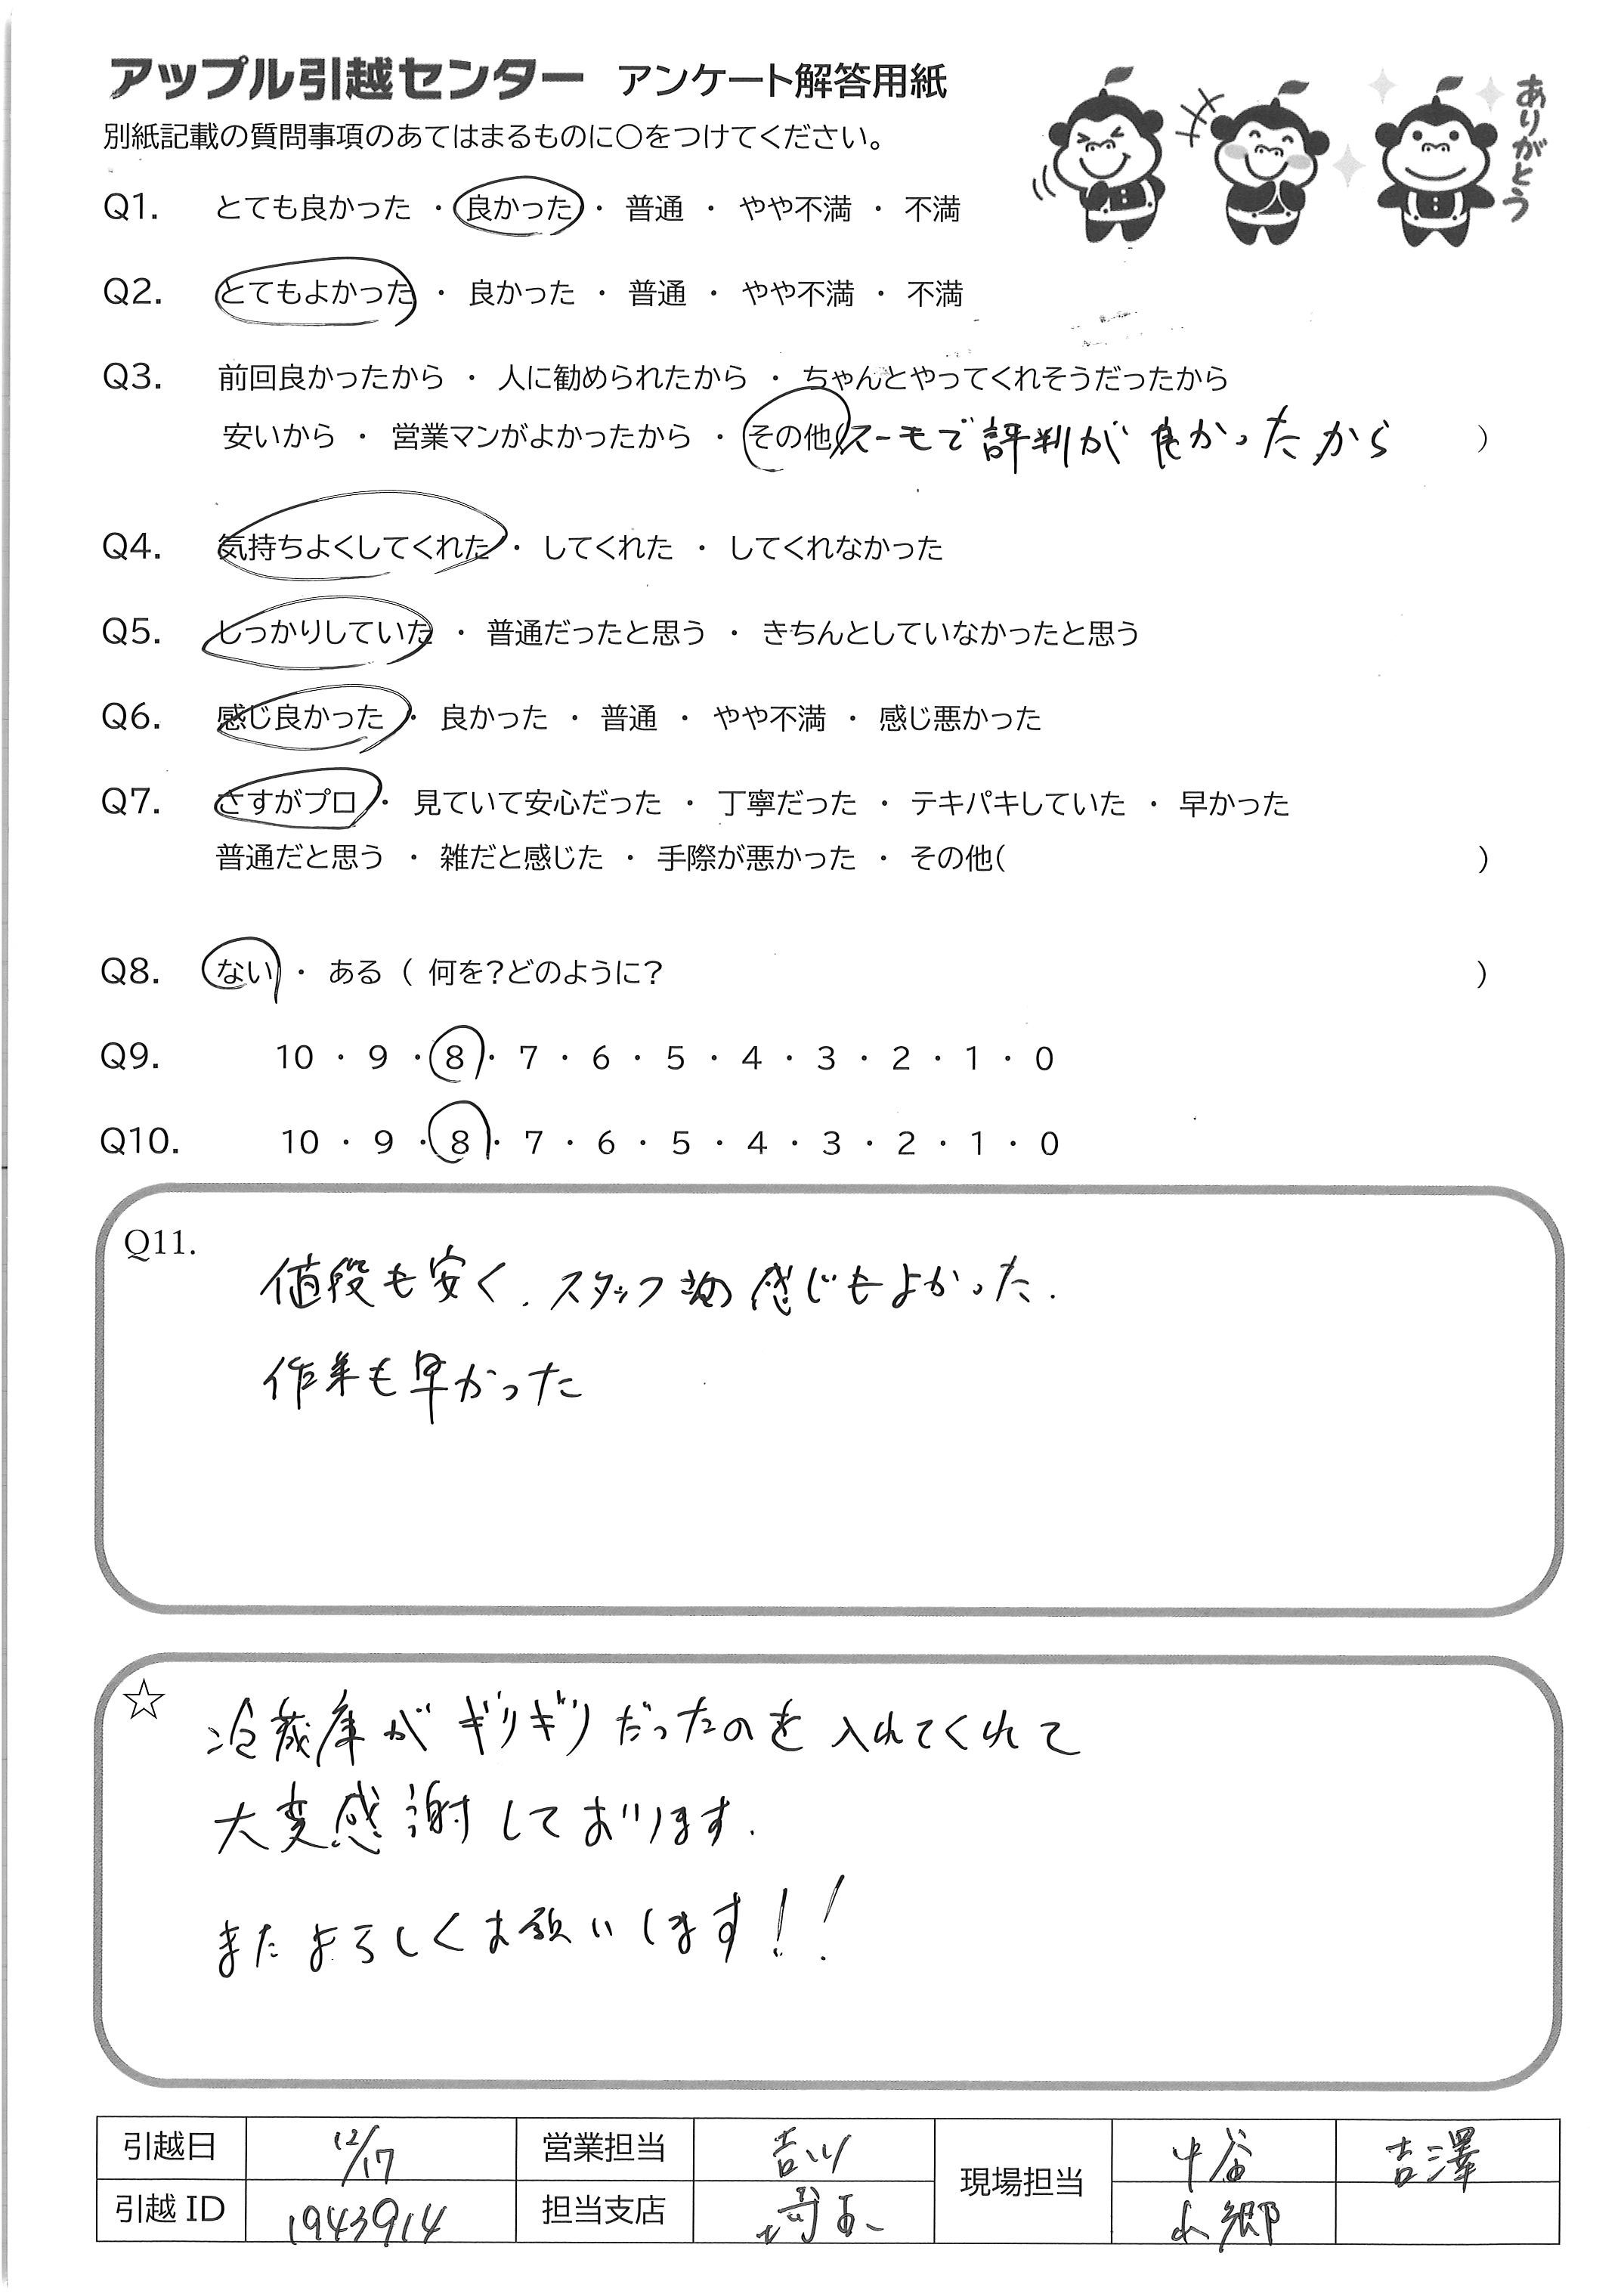 アップル引越センター アンケート解答用紙
ありがとう
別紙記載の質問事項のあてはまるものに○をつけてください。
Q1. とても良かった ・ 良かった ・ 普通 ・ やや不満 ・ 不満
Q2. とてもよかった ・ 良かった ・ 普通 ・ やや不満 ・ 不満
Q3. 前回良かったから ・ 人に勧められたから ・ ちゃんとやってくれそうだったから
安いから ・ 営業マンがよかったから ・ その他(スーモで評判が良かったから )
Q4. 気持ちよくしてくれた ・ してくれた ・ してくれなかった
Q5. しっかりしていた ・ 普通だったと思う ・ きちんとしていなかったと思う
Q6. 感じ良かった ・ 良かった ・ 普通 ・ やや不満 ・ 感じ悪かった
Q7. さすがプロ ・ 見ていて安心だった ・ 丁寧だった ・ テキパキしていた ・ 早かった
普通だと思う ・ 雑だと感じた ・ 手際が悪かった ・ その他( )
Q8. ない ・ ある ( 何を?どのように? )
Q9. 10 ・ 9 ・ 8 ・ 7 ・ 6 ・ 5 ・ 4 ・ 3 ・ 2 ・ 1 ・ 0
Q10. 10 ・ 9 ・ 8 ・ 7 ・ 6 ・ 5 ・ 4 ・ 3 ・ 2 ・ 1 ・ 0
Q11.
値段も安く、スタッフの感じもよかった.
作業も早かった
☆
冷蔵庫がギリギリだったのを入れてくれて
大変感謝しております.
またよろしくお願いします!!
引越日 12/17 営業担当 吉川 現場担当 中谷 吉澤
引越 ID 1943914 担当支店 埼玉